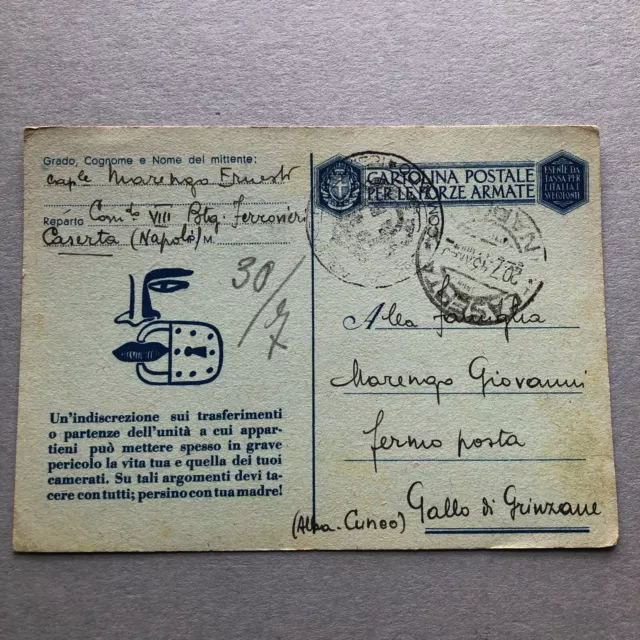 Grado, Cognome e Nome del mittente:
Cap.le Marengo Ernesto
Reparto Com.to VIII Btg. Ferrovieri
Caserta (Napoli) P. M.
30/7
CARTOLINA POSTALE
PER LE FORZE ARMATE
ESENTE DA
TASSA PER
L'ITALIA E
CASERTA
Alla famiglia
Marengo Giovanni
fermo posta
Gallo di Grinzane
(Alba-Cuneo)
Un'indiscrezione sui trasferimenti
o partenze dell'unità a cui appar-
tieni può mettere spesso in grave
pericolo la vita tua e quella dei tuoi
camerati. Su tali argomenti devi ta-
cere con tutti; persino con tua madre!